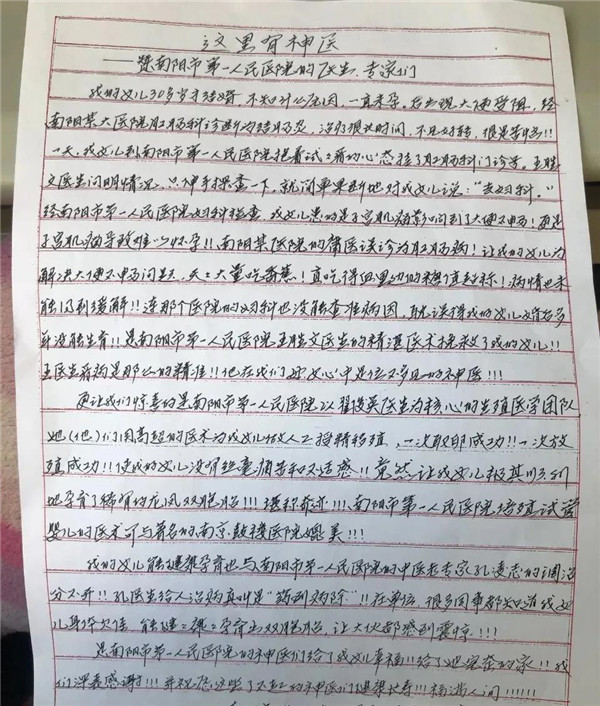 这里有神医
——赞南阳市第一人民医院的医生、专家们
我的女儿30多岁才结婚 不知什么原因，一直未孕。后出现大便受阻，经
南阳某大医院肛肠科诊断为结肠炎，治疗很长时间，不见好转，很是苦恼!!
一天，我女儿到南阳市第一人民医院抱着试一种的心态挂了肛肠科门诊号。王胜
文医生问明情况，只伸手探查一下，就简单果断地对我女儿说："去妇科。"
经南阳市第一人民医院妇科检查 我女儿患的是子宫肌瘤影响到了大便不畅！更是
子宫肌瘤导致难以怀孕!!南阳某医院的庸医误诊为肛肠病！让我的女儿为
解决大便不畅问题，天天大量吃香蕉！直吃得血里边的糖值超标！病情也未
能得到缓解!!连那个医院的妇科也没能查准病因，就误得我的女儿好多
年没能生育!!是南阳市第一人民医院王胜文医生的精湛医术拯救了我的女儿!!
王医生看病是那么的精准!!他在我们母女心中是位不多见的神医!!!
更让我们惊喜的是南阳市第一人民医院以翟俊英医生为核心的生殖医学团队
她(他)们用高超的医术为我女儿做人工授精移殖，一次取卵成功!!一次放
殖成功!!使我的女儿没有丝毫痛苦和不适感!!竟然让我女儿极其顺利
地孕育了稀有的龙凤双胞胎!!!堪称奇迹!!!南阳市第一人民医院培殖试管
婴儿的医术可与著名的南京鼓楼医院媲美!!!
我的女儿能健康孕育也与南阳市第一人民医院的中医老专家孔凌志的调治
分不开!!孔医生给人治病真叫是"药到病除"!!在单位，很多同事都知道我女
儿身体欠佳，能健健康康孕育出双胞胎，让大伙都感到震惊!!!
是南阳市第一人民医院的神医们给了我女儿幸福!!给了她完整的家!!我
们深表感谢!!!并祝愿这些了不起的神医们健康长寿!!!福满人间!!!!!!